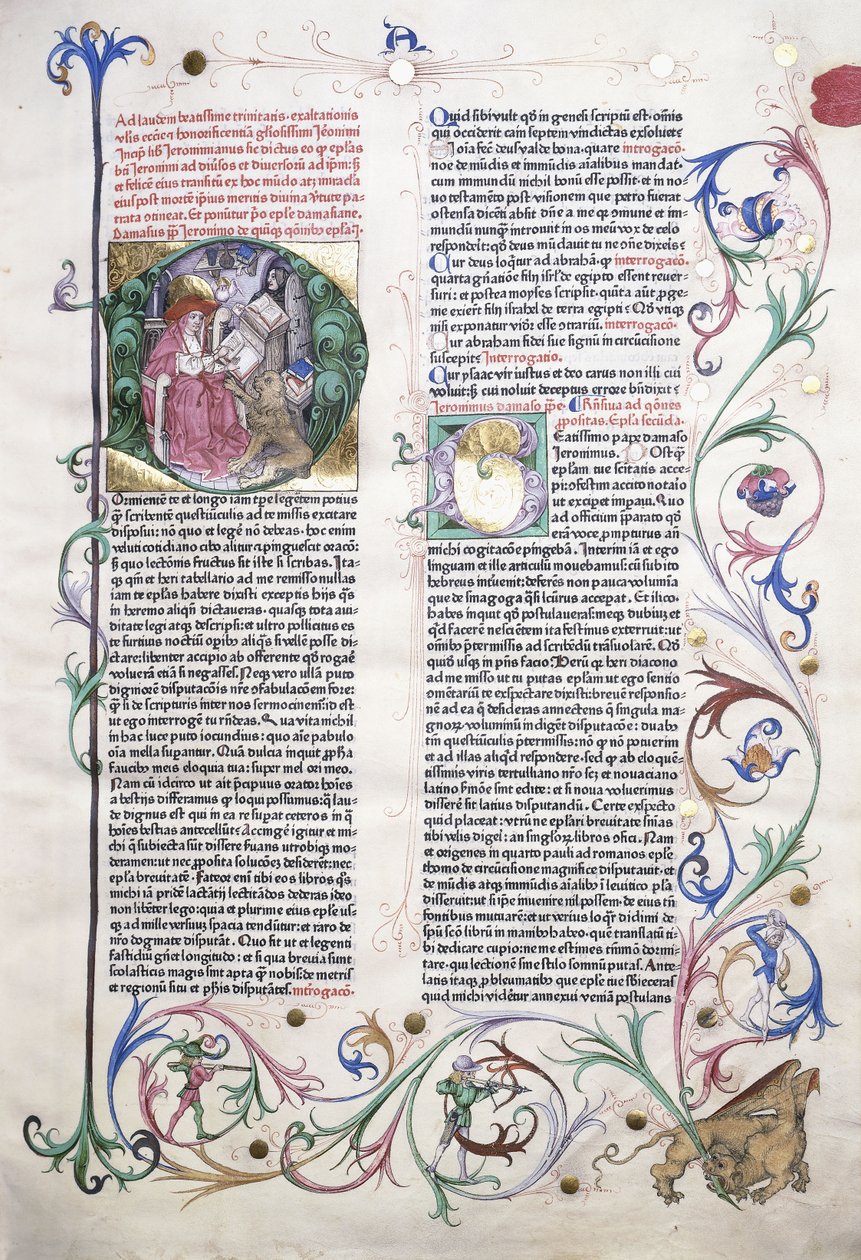 A
Ad laudem beatissime trinitatis · exaltationis
vlis ecciẽ q honorificentiã gliosissimi Jeronimi
Incipit lib Jeronimianus sic dictus eo ꝙ eplas
bti Jeronimi ad diũsos et diversorũ ad ipm: ꝫ
et felicẽ eius transitũ ex hoc mũdo atqꝫ miracĺa
eius post mortẽ ipius meritis divina ỹtute pa-
trata ꝯtineat. Et ponũtur pͦ eple damasiane.
Damasus pp̃ Jeronimo de quiqꝫ qͦnibꝰ epl̃a j.
Ormientẽ te et longo iam tp̃e legẽtem potius
qͣꝫ scribentẽ questiũculis ad te missis excitare
disposui: nõ quo et legẽ nõ debeas · hoc enim
veluti cotidiano cibo alitur ⁊ pinguescit oracõ:
sꝫ quo lectionis fructus sit iste si scribas. Ita-
qꝫ qm̃ et heri tabellario ad me remisso nullas
iam te epl̃as habere dixisti exceptis hijs qͣs
in heremo aliqñ dictaveras · quasqꝫ tota aui-
ditate legi atqꝫ descripsi: et ultro pollicitus es
te furtiuis noctiũ oꝑibꝰ aliqͣs si vellẽ posse di-
ctare: libenter accipio ab offerente qͦd rogaẽ
volueră etiã si negasses. Neqꝫ vero ullã puto
digniorẽ disputacõis nr̃e ꝯfabulacõem fore:
qͣꝫ si de scripturis inter nos sermocinem̃: id est
ut ego interrogẽ tu rñdeas. Qua vita nichil
in hac luce puto iocundius: quo aĩe pabulo
oĩa mella suꝑantur. Quã dulcia inquit ꝓph̃a
faucibꝰ meis eloquia tua: super mel ori meo.
Nam cũ idcirco ut ait p̃cipuus orator hoĩes
a bestijs differamus ꝙ loqui possumus: qͣ lau-
de dignus est qui in ea re suꝑat ceteros in qͣ
hoĩes bestias antecellũt: Accingẽ igitur et mi-
chi q̃ subiecta sũt dissere ẜuans utrobiqꝫ mo-
deramen: ut nec ꝓposita solucõeꝫ desiderẽt: nec
epl̃a brevitatẽ. Fateor enĩ tibi eos libros qͦs
michi iã pridẽ lactãtij lectitãdos dederas ideo
non libẽter lego: quia et plurime eius eple us-
qꝫ ad mille versuũ spacia tendũtur: et raro de
nr̃o dogmate disputãt. Quo fit ut et legenti
fastidiũ gñet longitudo: et si qua brevia sunt
scolasticis magis sint apta qͣꝫ nobis: de metris
et regionũ situ et phĩs disputãtes. interogacõ·
Quid sibi vult qͦd in genesi scriptũ est · omĩs
qui occiderit cain septem vindictas exsoluet:
Si oĩa fec̃ deus valde bona. quare interogacõ·
noe de mũdis et immũdis aĩalibus mandat.
cum immundũ nichil bonũ esse possit. et in no-
uo testamẽto post visionem que petro fuerat
ostensa dicẽti absit dñe a me qꝫ ꝯmune et im-
mundũ nunqͣꝫ introiuit in os meũ vox de celo
respondelt: qͦd deus mũdauit tu ne ꝯẽ dixeris:
Cur deus loqt̃ur ad abrahã. ꝙ interogacõ·
quarta gñatiõe filij isrl̃ de egipto essent rever-
suri: et postea moyses scripsit · quĩta aũt ꝓge-
nie exier̃t filij israhel de terra egipti: Qͦd vtiqꝫ
nisi exponatur vidẽt esse ꝯtrariũ. interogacõ·
Cur abraham fidei sue signũ in circũcisione
suscepit: Interrogatio.
Cur ysaac vir iustus et deo carus non illi cui
voluit: sꝫ cui noluit deceptus errore bñdixit:
Jeronimus damaso pp̃e. Rñsiua ad qͦnes
ꝓpositas. Epl̃a secũda.
Eatissimo pape damaso
Jeronimus. Postqͣꝫ
epl̃am tue scitatis acce-
pi: ꝯfestim accito notario
ut exciꝑet imꝑaui. Quo
ad officium ꝑparato qͦd
erã voce ꝓmpturus añ
michi cogitacõe pingebã. Interim iã et ego
linguam et ille articulũ mouebamus: cũ subito
hebreus intueñit: deferẽs non pauca volumĩa
que de sinagoga qͣsi lc̃urus acceꝑat. Et ilico ·
habes inquit qͦd postulaueras: meqꝫ dubiũ et
qͥd facerẽ nesciẽtem ita festinus exterruit: ut
omĩbꝰ p̃termissis ad scribẽdũ trãsuolarẽ. Qͦd
quidẽ usqꝫ in p̃ñs facio. Verũ qꝫ heri diacono
ad me misso ut tu putas epl̃am ut ego sentio
ꝯmẽtariũ te exspectare dixisti: breuẽ responsio-
nẽ ad ea q̃ desideras annectens q̃ singula ma-
gnoꝝ voluminũ indigẽt disputacõe: duabꝰ
tm̃ questiũculis p̃termissis: nõ ꝙ nõ potuerim
et ad illas aliqͥd respondere · sed ꝙ ab eloquẽ-
tissimis viris tertulliano nr̃o scꝫ et nouaciano
latino ẜmõe sint edite: et si noua voluerimus
differẽ sit latius disputandũ. Certe exspecto
quid placeat: vtrũ ne epl̃ari breuitate sñias
tibi velis digeĩ: an singl̃oꝝ libros ꝯfici. Nam
et origenes in quarto pauli ad romanos epl̃e
thomo de circũcisione magnifice disputauit. et
de mũdis atqꝫ immũdis aĩalibꝰ ĩ leuitico pl̃a
disseruit: ut si ip̃e inuenire nil possem · de eius tñ
fontibus mutuarẽ: et ut verius loqͣr didimi de
spũ scõ librũ in manibꝰ habeo · quẽ translatũ ti-
bi dedicare cupio: ne me estimes tm̃mõ dormi-
tare · qui lectionẽ sine stilo somnũ putas. Ante-
latis itaqꝫ ꝓbleumatibꝰ que eple tue s̃bieceras
quid michi vidẽtur annexui veniã postulans